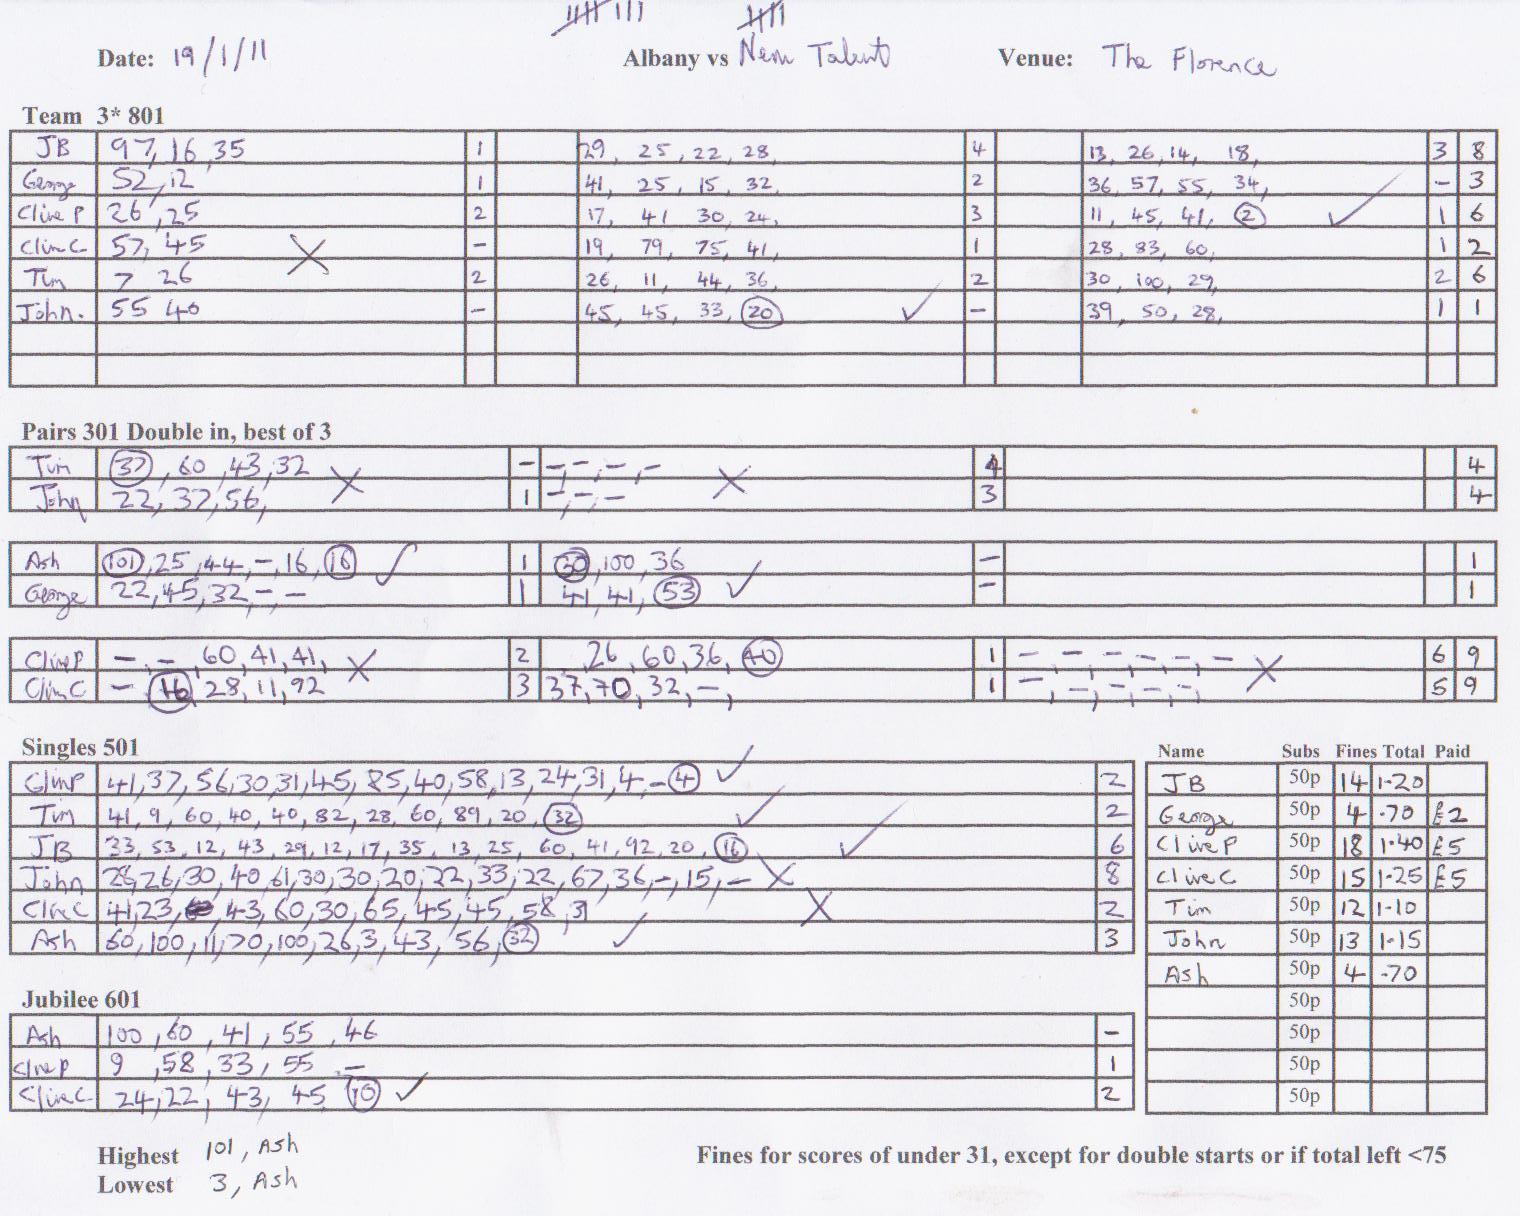 Date: 19/1/11 Albany vs New Talent Venue: The Florence
Team 3* 801
JB 97, 16, 35 1 29, 25, 22, 28, 4 13, 26, 14, 18, 3 8
George 52, 12 1 41, 25, 15, 32, 2 36, 57, 55, 34, - 3
Clive P 26, 25 2 17, 41 30, 24, 3 11, 45, 41, 2 1 6
Clive C 57, 45 - 19, 79, 75, 41, 1 28, 83, 60, 1 2
Tim 7 26 2 26, 11, 44, 36, 2 30, 100, 29, 2 6
John. 55 40 - 45, 45, 33, 20 - 39, 50, 28, 1 1
Pairs 301 Double in, best of 3
Tim 37, 60, 43, 32 - -, -, -, - 4 4
John 22, 37, 56, 1 -, -, - 3 4
Ash 101, 25, 44, -, 16, 16 1 30, 100, 36 - 1
George 22, 45, 32, -, - 1 41, 41, 53 - 1
Clive P -, -, 60, 41, 41, 2 26, 60, 36, 40 1 - - - - - - 6 9
Clive C - 16, 28, 11, 92 3 37, 70, 32, -, 1 -, -, -, -, -, 5 9
Singles 501
Clive P 41, 37, 56, 30, 31, 45, 85, 40, 58, 13, 24, 31, 4, - 4 2
Tim 41, 9, 60, 40, 40, 82, 28, 60, 89, 20, 32 2
JB 33, 53, 12, 43, 29, 12, 17, 35, 13, 25, 60, 41, 92, 20, 16 6
John 28, 26, 30, 40, 61, 30, 30, 20, 22, 33, 22, 67, 36, -, 15, - 8
Clive C 41, 23, 43, 60, 30, 65, 45, 45, 58, 31 2
Ash 60, 100, 11, 70, 100, 26, 3, 43, 56, 32 3
Name Subs Fines Total Paid
JB 50p 14 1-20
George 50p 4 -70 £2
Clive P 50p 18 1-40 £5
Clive C 50p 15 1-25 £5
Tim 50p 12 1-10
John 50p 13 1-15
Ash 50p 4 -70
50p
50p
50p
50p
Jubilee 601
Ash 100, 60, 41, 55, 46 -
Clive P 9, 58, 33, 55 - 1
Clive C 24, 22, 43, 45 10 2
Highest 101, Ash
Lowest 3, Ash
Fines for scores of under 31, except for double starts or if total left <75